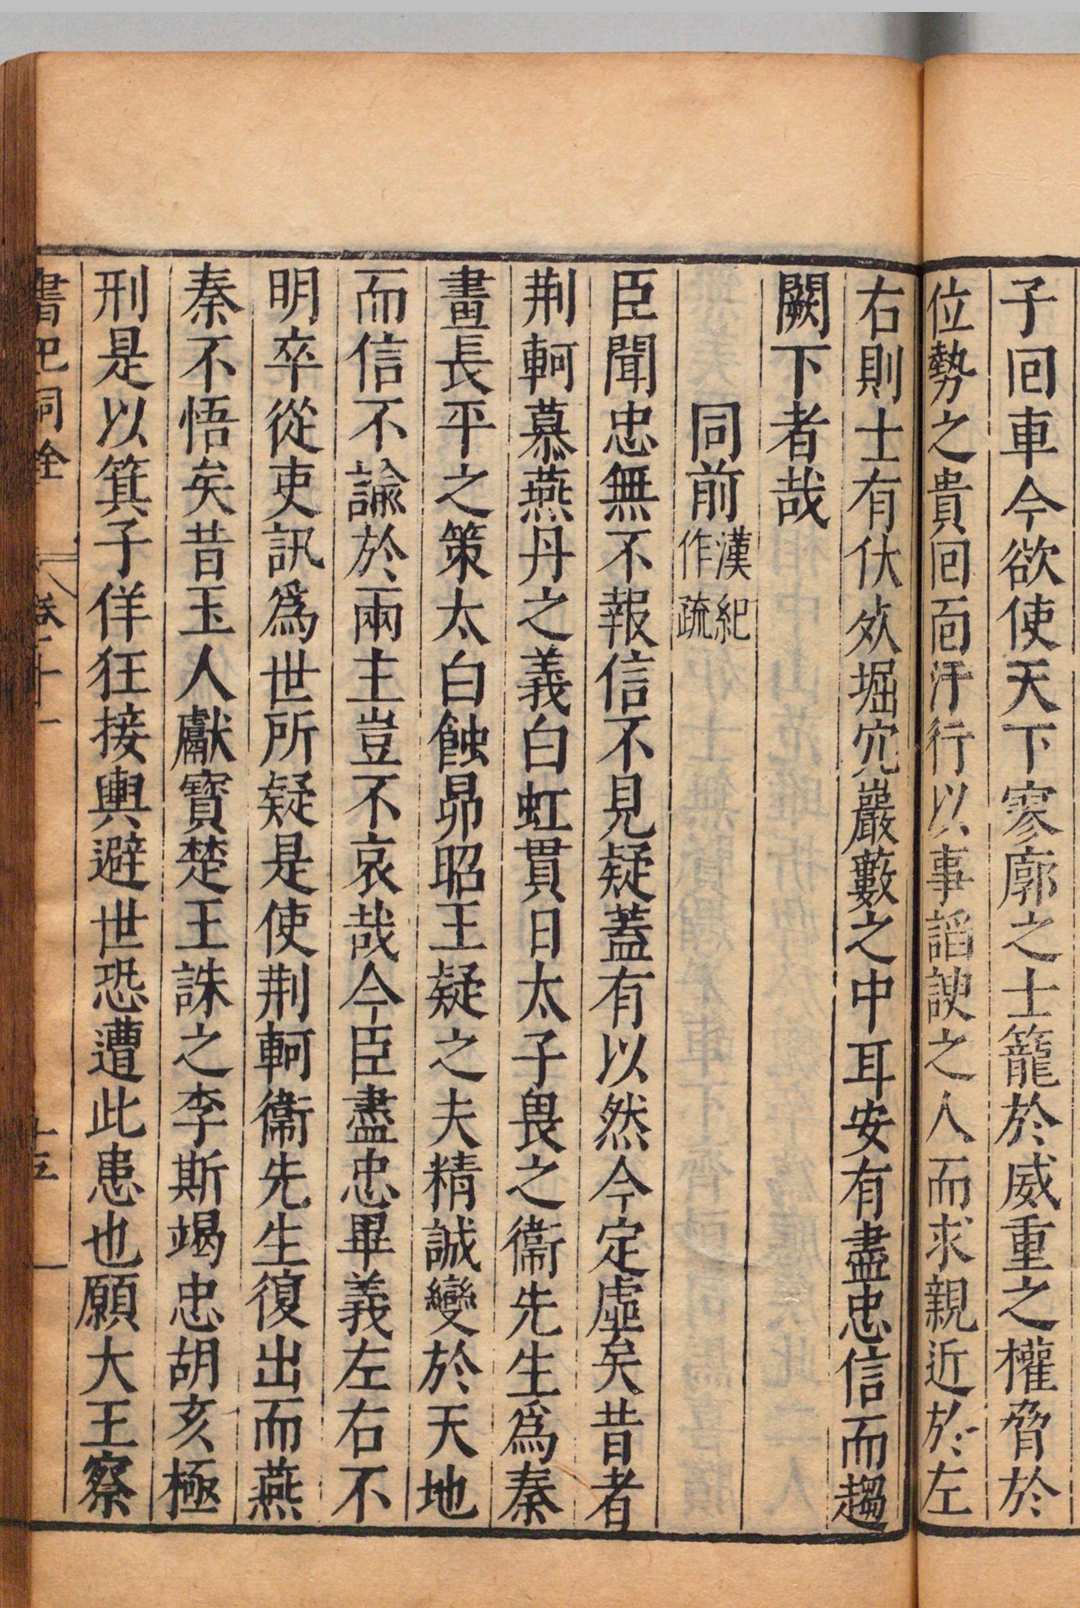 子回車今欲使天下寥廓之士籠於威重之權脅於
位勢之貴回面汙行以事謟諛之人而求親近於左
右則士有伏死堀穴巖藪之中耳安有盡忠信而趨
闕下者哉
同前漢紀作疏
臣聞忠無不報信不見疑蓋有以然今定虛矣昔者
荆軻慕燕丹之義白虹貫日太子畏之衞先生爲秦
畫長平之策太白蝕昴昭王疑之夫精誠變於天地
而信不諭於兩主豈不哀哉今臣盡忠畢義左右不
明卒從吏訊爲世所疑是使荆軻衞先生復出而燕
秦不悟矣昔玉人獻寶楚王誅之李斯竭忠胡亥極
刑是以箕子佯狂接輿避世恐遭此患也願大王察
書記洞詮 卷二十一 十五